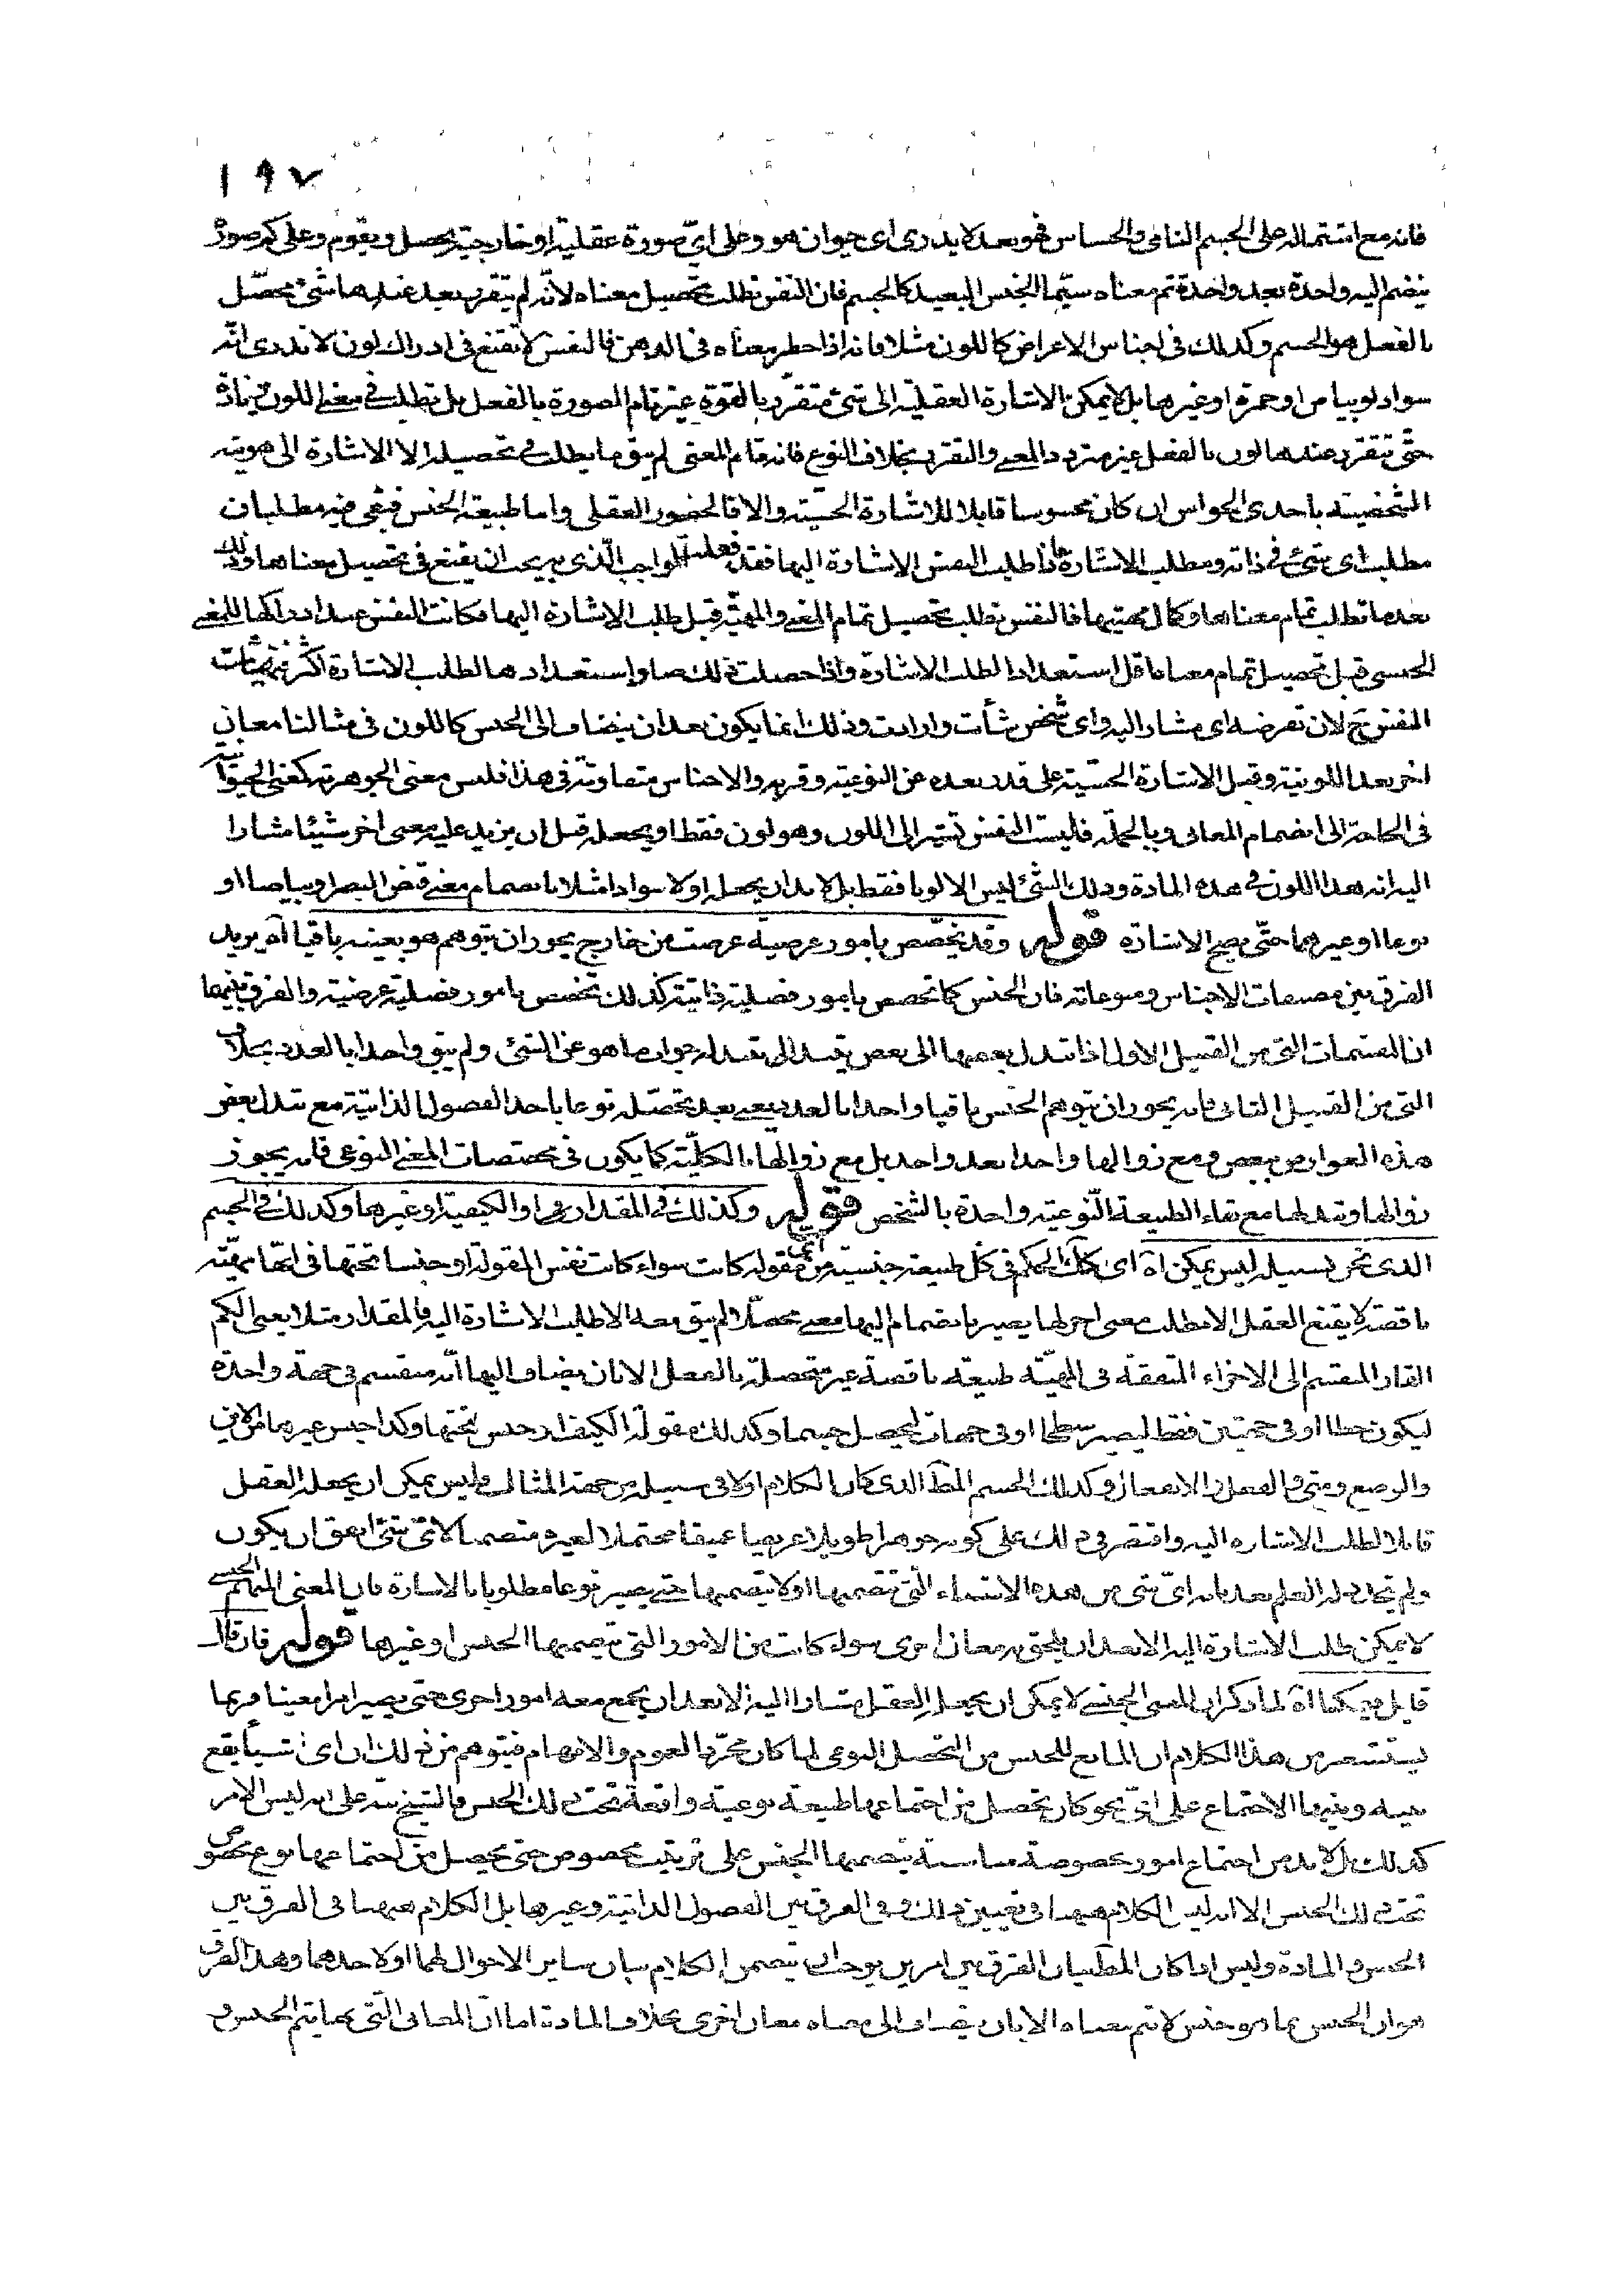 ١٩٧
فانه مع اشتماله على الجسم النامى والحساس فهو بعد لا يدرى اى حيوان هو وعلى اىّ صورة عقلية او خارجية يحصل ويقوم وعلى كم صورة
ينضم اليه واحدة بعد واحدة تم معناه سيّما الجنس البعيد كالجسم فان النفس تطلب تحصيل معناه لانّه لم يتقرر بعد عندها شئ محصّل
بالفعل هو الجسم وكذلك فى اجناس الاعراض كاللون مثلا فانه اذا خطر معناه فى الذهن فالنفس لا تقنع فى ادراك لون لا تدرى انّه
سواد او بياض او حمرة او غيرها بل لا يمكن الاشارة العقليّه الى شئ متقرّر بالقوة غير تمام الصورة بالفعل بل تطلب فى معنى اللون زيادة
حتّى تتقرر عندها لون بالفعل غير متردد المعنى والتقرر بخلاف النوع فانه تمام المعنى لم يبق ما يطلب فى تحصيله الا الاشارة الى هويته
الشخصيته باحدى الحواس ان كان محسوسا قابلا للاشارة الحسيّته والا فالحضور العقلى واما طبيعة الجنس فبقى فيه مطلبان
مطلب اى شئ فى ذاته ومطلب الاشارة فاذا طلب النفس الاشارة اليها فقد فعلت الواجب الّذى يجب ان يقنع فى تحصيل معناها وذلك
بعد ما تطلب تمام معناها وكمال مهيتها فالنفس تطلب تحصيل تمام المعنى والمهيّة قبل طلب الاشارة اليها فكانت النفس عند ادراكها للمعنى
الجنسى قبل تحصيل تمام معناها قل استعدادا لطلب الاشارة واذا حصلت ذلك صار استعدادها لطلب الاشارة اكثر
النفس ح لان تفرضه اى مشار اليه واى شخص شأت وارادت وذلك انما يكون بعد ان ينضاف الى الجنس كاللون فى مثالنا معان
اخر بعد اللونية وقبل الاشارة الحسّيّة على قدر بعده عن النوعيّة وقربه والاجناس متفاوتة فى هذا فليس معنى الجوهرية كمعنى الحيوانية
فى الحاجة الى انضمام المعانى وبالجملة فليست النفس تشير الى اللون وهو لون فقط او يجعله قبل ان يزيد عليه معنى اخر شيئا مشارا
اليه انه هذا اللون فى هذه المادة وذلك الشئ ليس الا لونا فقط بل لابد ان يجعله اولا سوادا مثلا بانضمام معنى قبض البصر او بياضا او
نوعا او غيرهما حتّى يصح الاشارة قوله وقد يتخصّص بامور عرضية عرضت من خارج يجوز ان يتوهم هو بعينه باقيا آه يريد
الفرق بين مصنفات الاجناس ومنوعاته فان الجنس كما تخصص بامور فصلية ذاتية كذلك تخصص بامور فصلية عرضية والفرق بينهما
ان المتممات التى من القبيل الاول اذا تبدل بعضها الى بعض يتبدل جواب ما هو عن الشئ ولم يبق واحدا بالعدد بخلاف
التى من القبيل الثانى فانه يجوز ان يتوهم الجنس باقيا واحدا بالعدد يعنى بعد تحصّله نوعا باحد الفصول الذاتيّة مع تبدل بعض
هذه العوارض ببعض ومع زوالها واحدا بعد واحد بل مع زوالها بالكليّة كما يكون فى مختصات المعنى النوعى فانه يجوز
زوالها وتبدلها مع بقاء الطبيعة النّوعية واحدة بالشخص قوله وكذلك فى المقدار او الكيفية او غيرها وكذلك فى الجسم
الذى نحن بسبيله ليس يمكن آه اى كذلك الحكم فى كل طبيعة جنسية من اىّ مقولة كانت سواء كانت نفس المقولة او جنسا تحتها فى انّها مهيّته
ناقصة لا يقنع العقل الا بطلب معنى اخر لها يصير بانضمام اليها معنى محصّلا لم يبق بعد الا طلب الاشارة اليه فالمقدار مثلا يعنى الكم
القار المنقسم الى الاجزاء المتفقة فى المهيّة طبيعة ناقصة غير متحصلة بالفعل الا بان يضاف اليها انّه منقسم فى جهة واحدة
ليكون خطا او فى جهتين فقط ليصير سطحا او فى جهات ليحصل جسما وكذلك مقولة الكيف او جنس تحتها وكذا جنس غيرهما من الاين
والوضع ومتى والفعل والانفعال وكذلك الجسم المط الذى كان الكلام اولا فى سبيله من جهة المثال فليس يمكن ان يجعله العقل
قابلا لطلب الاشاره اليه واقتصر فى ذلك على كونه جوهرا طويلا عريضا عميقا محتملا لغيره متضمنا لاىّ شئ اتفق ان يكون
ولم يتحدد له العلم بعد بانه اىّ شئ من هذه الاشياء الّتى تتضمنها او لا يتضمنها حتى يصير نوعا مطلوبا بالاشارة فان المعنى المبهم الجنسى
لا يمكن طلب الاشارة اليه الا بعد ان يلحق به معان اخرى سواء كانت من الامور التى يتضمنها الجنس او غيرها قوله فان قال
قايل فيمكننا آه لما ذكر ان المعنى الجنسى لا يمكن ان يجعل العقل مشارا اليه الا بعد ان يجمع معه امور اخرى حتى يصير امرا معينا فربما
يستشعر من هذا الكلام ان المانع للجنس من التحصل النوعى لما كان مجرّد العموم والابهام فيتوهم من ذلك ان اى شيأ يقع
بينه وبينها الاجتماع على اىّ نحو كان تحصل من اجتماعها طبيعة نوعية واقعة تحت ذلك الجنس فالشيخ نبّه على انه ليس الامر
كذلك بل لابد من اجتماع امور مخصوصة مناسبة يتضمنها الجنس على ترتيب مخصوص حتى يحصل من اجتماعها نوع مخصوص
تحت ذلك الجنس الا انه ليس الكلام ههنا فى تعيين ذلك وفى الفرق بين الفصول الذاتية وغيرها بل الكلام ههنا فى الفرق بين
الجنس والمادة وليس اذا كان المط بيان الفرق بين امرين يوجب ان يتضمن الكلام بيان ساير الاحوال لهما او لاحدهما وهذا الفرق
هو ان الجنس بما هو جنس لا تتم معناه الا بان يضاف الى معناه معان اخرى بخلاف المادة اما انّ المعانى الّتى بها يتم الجنس و